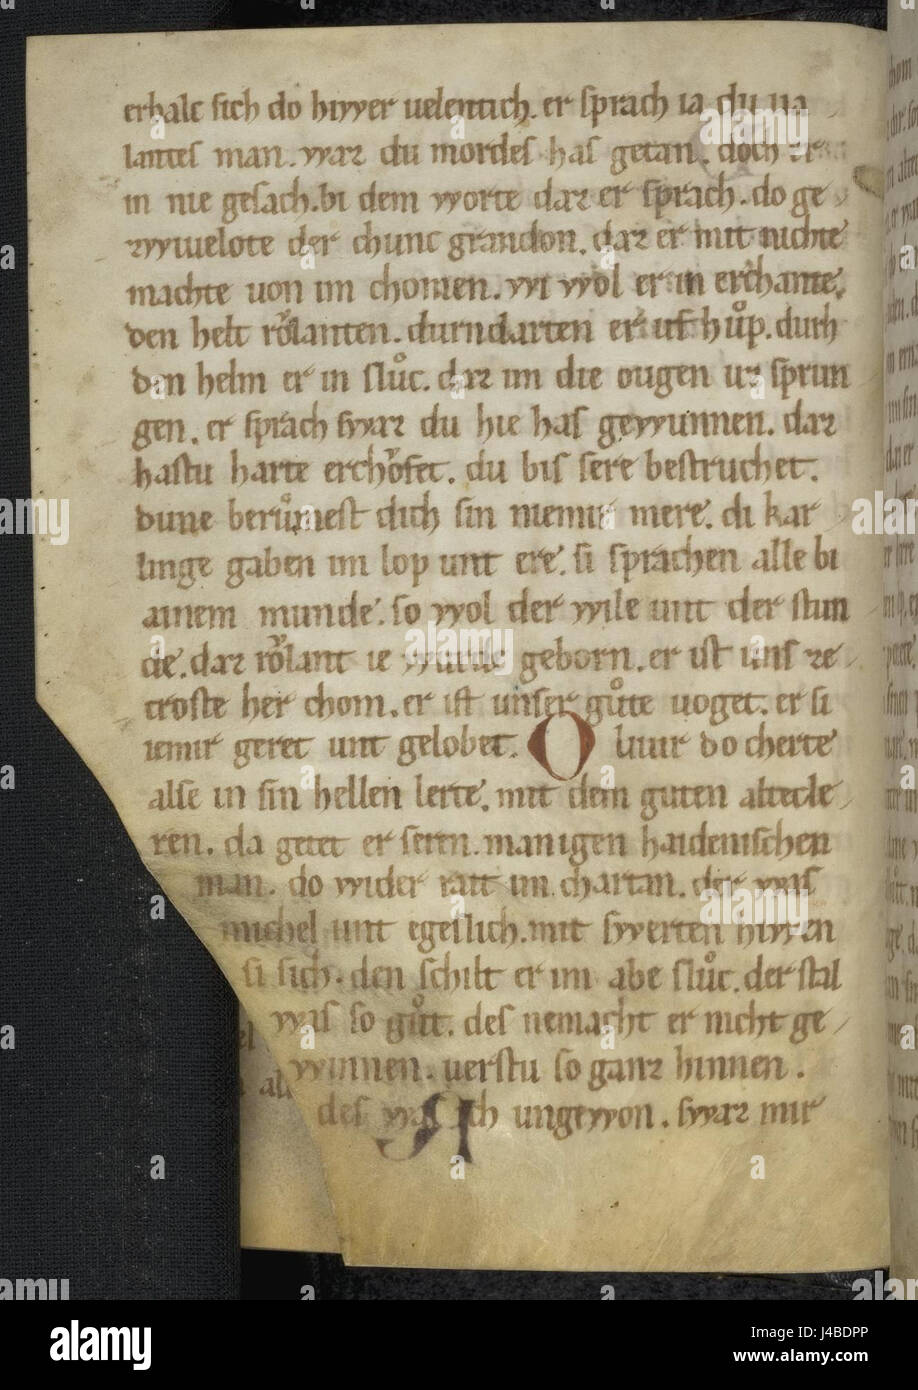 erhalt sich do hiwer uelentich. er sprach ia du ua
lantes man. waz du mordes has getan. doch er
in nie gesach. bi dem worte daz er sprach. do ge
zwiuelote der chunc grandon. daz er mit nichte
machte uon im chomen. wi wol er in erchante.
den helt rǒlanten. durndarten er uf hůp. durh
den helm er in slůc. daz im die ougen uz sprun
gen. er sprach swaz du hie has gewunnen. daz
hastu harte erchǒfet. du bis sere bestruchet.
dune berůmest dich sin niemir mere. di kar
linge gaben im lop unt ere. si sprachen alle bi
ainem munde. so wol der wile unt der stun
de. daz rǒlant ie wurde geborn. er ist uns ze
troste her chom. er ist unser gůte uoget. er si
iemir geret unt gelobet. O liuir do cherte
alse in sin hellen lerte. mit dem guten altecle
ren. da getet er seren. manigen haidenischen
man. do wider rait im chartan. der was
michel unt egeslich. mit swerten hiwen
si sich. den schilt er im abe slůc. der stal
was so gůt. des nemacht er nicht ge
winnen. uerstu so ganz hinnen.
des was ich ungewon. swaz mir
alamy
Image ID: J4BDPP
www.alamy.com